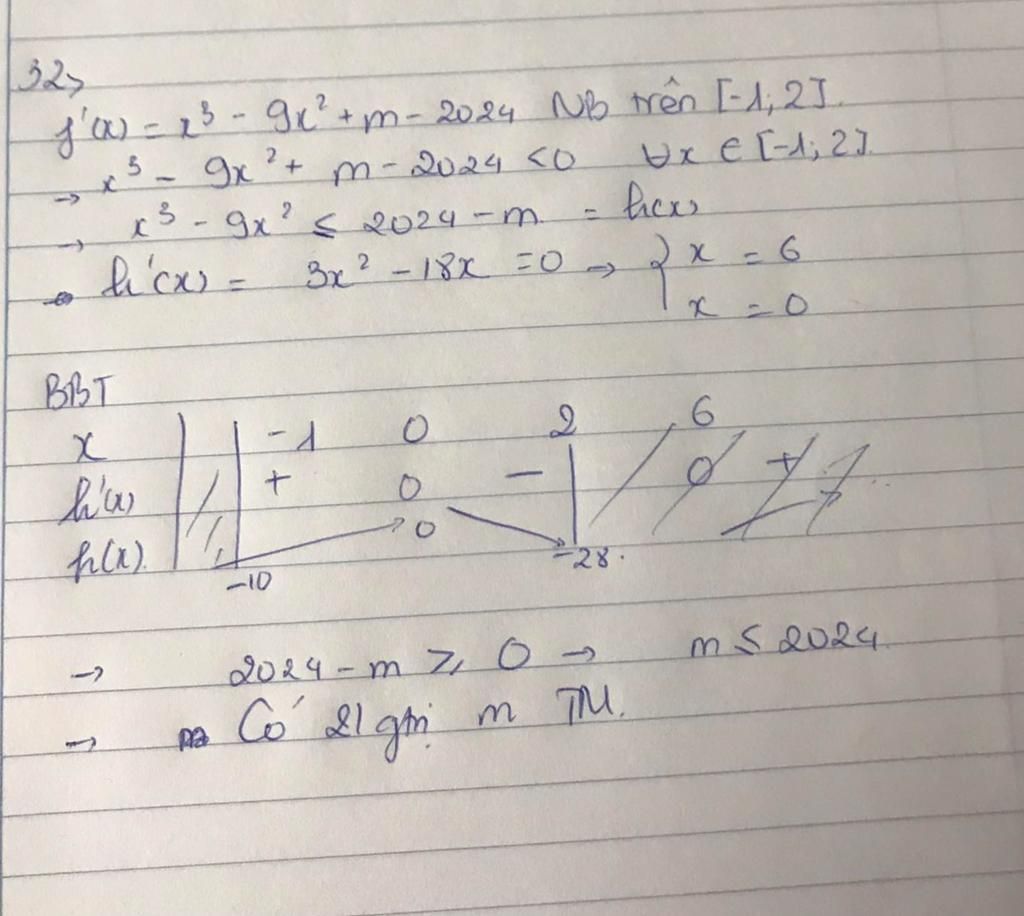 32>
f'(x) = x³ - 9x² + m - 2024 NB trên [-1; 2].
→ x³ - 9x² + m - 2024 < 0 ∀x ∈ [-1; 2].
→ x³ - 9x² ≤ 2024 - m = h(x)
h'(x) = 3x² - 18x = 0 → { x = 6
x = 0
BBT
x -1 0 2 6
h'(x) + 0 - 0 +
h(x). -10 0 -28.
→ 2024 - m ≥ 0 → m ≤ 2024.
→ Có 21 gtrị m TM.